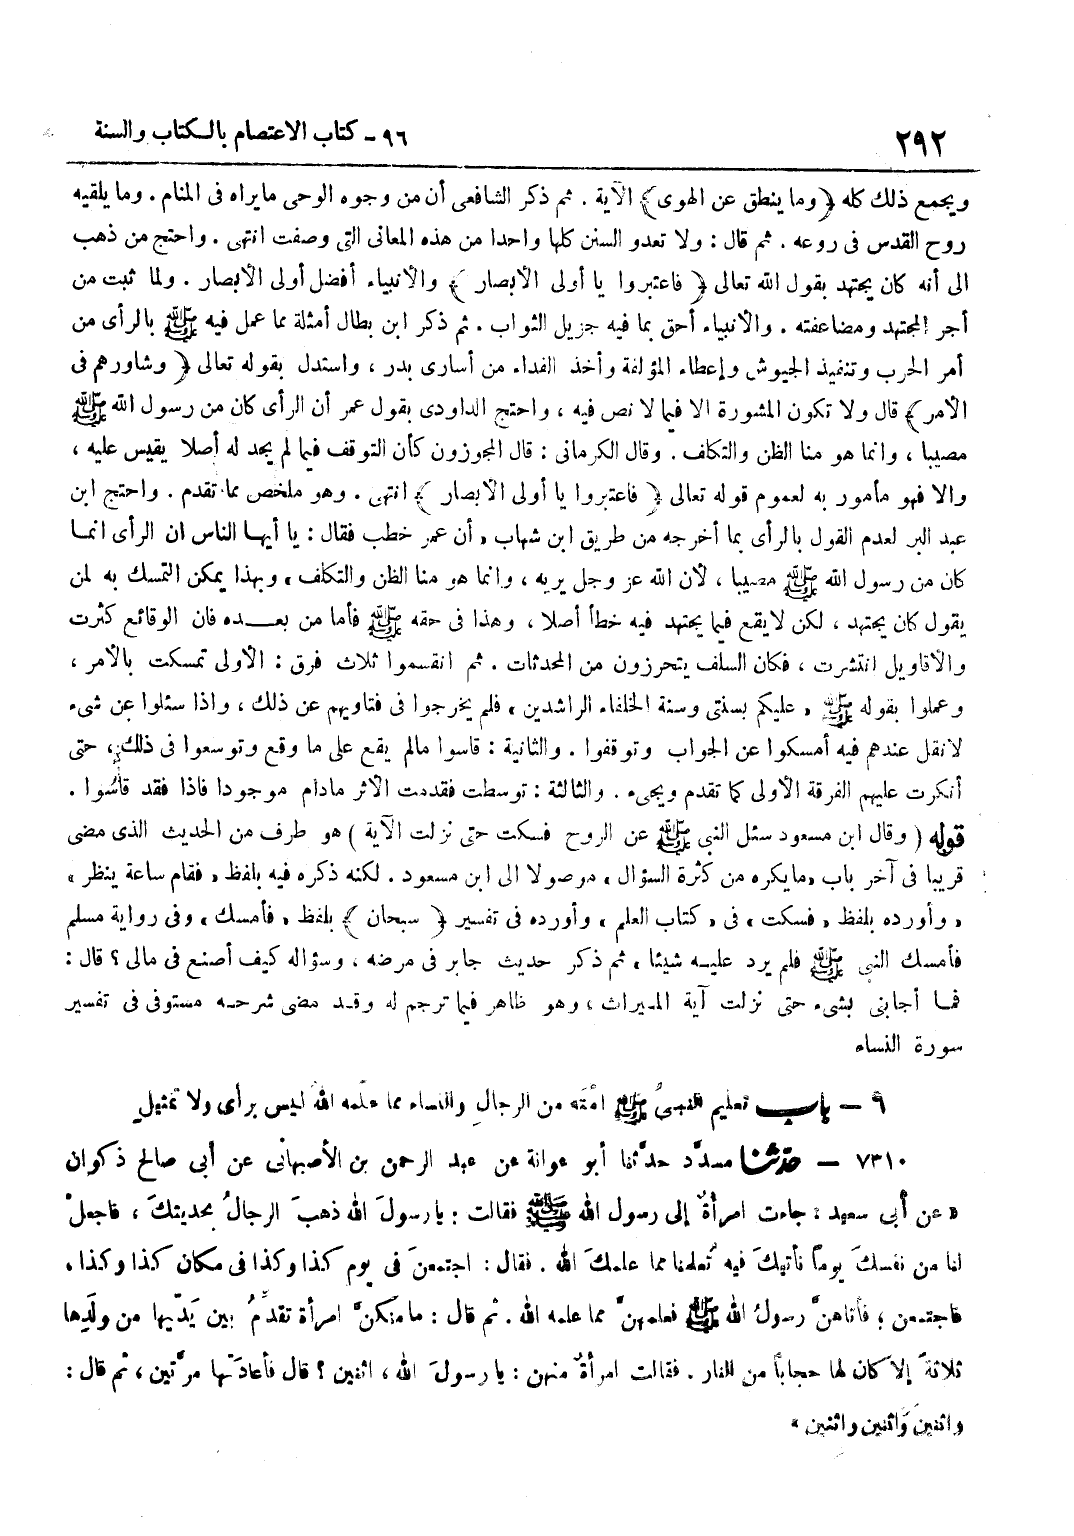 ٢٩٢
٩٦ - كتاب الاعتصام بالكتاب والسنة
ويجمع ذلك كله ﴿ وما ينطق عن الهوى ﴾ الآية . ثم ذكر الشافعى أن من وجوه الوحى ما يراه فى المنام . وما يلقيه
روح القدس فى روعه . ثم قال : ولا تعدو السنن كلها واحدا من هذه المعانى التى وصفت انتهى . واحتج من ذهب
الى أنه كان يجتهد بقول الله تعالى ﴿ فاعتبروا يا أولى الأبصار ﴾ والأنبياء أفضل أولى الأبصار . ولما ثبت من
أجر المجتهد ومضاعفته . والأنبياء أحق بما فيه جزيل الثواب . ثم ذكر ابن بطال أمثلة مما عمل فيه ﷺ بالرأى من
أمر الحرب وتنفيذ الجيوش وإعطاء المؤلفة وأخذ الفداء من أسارى بدر ، واستدل بقوله تعالى ﴿ وشاورهم فى
الأمر ﴾ قال ولا تكون المشورة الا فيما لا نص فيه ، واحتج الداودى بقول عمر أن الرأى كان من رسول الله ﷺ
مصيبا ، وانما هو منا الظن والتكلف . وقال الكرمانى : قال المجوزون كأن التوقف فيما لم يجد له أصلا يقيس عليه ،
والا فهو مأمور به لعموم قوله تعالى ﴿ فاعتبروا يا أولى الأبصار ﴾ انتهى . وهو ملخص مما تقدم . واحتج ابن
عبد البر لعدم القول بالرأى بما أخرجه من طريق ابن شهاب « أن عمر خطب فقال : يا أيها الناس ان الرأى انما
كان من رسول الله ﷺ مصيبا ، لأن الله عز وجل يريه ، وانما هو منا الظن والتكلف » وبهذا يمكن التمسك به لمن
يقول كان يجتهد ، لكن لا يقع فيما يجتهد فيه خطأ أصلا ، وهذا فى حقه ﷺ فأما من بعده فان الوقائع كثرت
والأقاويل انتشرت ، فكان السلف يتحرزون من المحدثات . ثم انقسموا ثلاث فرق : الأولى تمسكت بالأمر ،
وعملوا بقوله ﷺ « عليكم بسنتى وسنة الخلفاء الراشدين » فلم يخرجوا فى فتاويهم عن ذلك ، واذا سئلوا عن شىء
لا نقل عندهم فيه أمسكوا عن الجواب وتوقفوا . والثانية : قاسوا مالم يقع على ما وقع وتوسعوا فى ذلك ، حتى
أنكرت عليهم الفرقة الأولى كما تقدم ويجىء . والثالثة : توسطت فقدمت الأثر مادام موجودا فاذا فقد قاسوا .
قوله ( وقال ابن مسعود سئل النبى ﷺ عن الروح فسكت حتى نزلت الآية ) هو طرف من الحديث الذى مضى
قريبا فى آخر باب « ما يكره من كثرة السؤال » موصولا الى ابن مسعود . لكنه ذكره فيه بلفظ « فقام ساعة ينظر »
« وأورده بلفظ « فسكت » فى « كتاب العلم » وأورده فى تفسير ﴿ سبحان ﴾ بلفظ « فأمسك » وفى رواية مسلم
فأمسك النبى ﷺ فلم يرد عليه شيئا » ثم ذكر حديث جابر فى مرضه ، وسؤاله كيف أصنع فى مالى ؟ قال :
فما أجابنى بشىء حتى نزلت آية الميراث ، وهو ظاهر فيما ترجم له وقد مضى شرحه مستوفى فى تفسير
سورة النساء
٩ - باب تعليم النبىُّ ﷺ امّته من الرجالِ والنساء مما علّمه اللهُ ليس برأى ولا تمثيلٍ
٧٣١٠ - حدّثنا مسدَّد حدَّثنا أبو عوانة عن عبد الرحمن بن الأصبهانى عن أبى صالح ذكوان
« عن أبى سعيد : جاءت امرأةٌ إلى رسول الله ﷺ فقالت : يا رسولَ الله ذهبَ الرجالُ بحديثكَ ، فاجعلْ
لنا من نفسكَ يوماً نأتيكَ فيه تُعلمنا مما علمكَ الله . فقال : اجتمعنَ فى يوم كذا وكذا فى مكان كذا وكذا ،
فاجتمعن ؛ فأتاهنَّ رسولُ الله ﷺ فعلمهنَّ مما علمه الله . ثم قال : ما منكنَّ امرأة تقدِّمُ بين يَدَيها من ولَدِها
ثلاثةً إلا كان لها حجاباً من النار . فقالت امرأةٌ منهن : يا رسولَ الله ، اثنين ؟ قال فأعادَتها مرَّتين ، ثم قال :
واثنينَ وَاثنين واثنين »